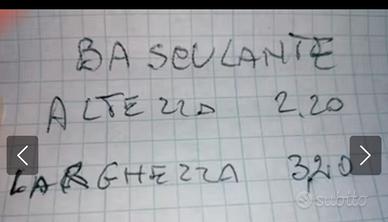 BASCULANTE
ALTEZZA 2.20
LARGHEZZA 3,20
subito